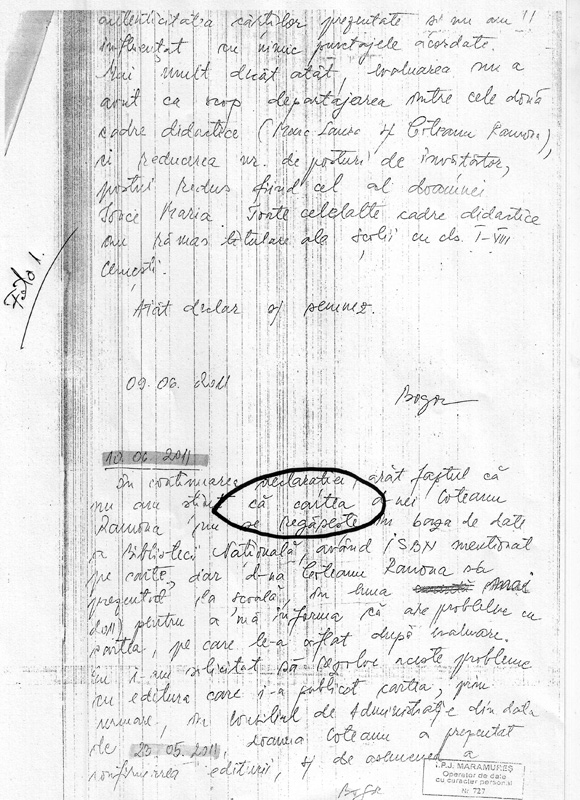 autenticitatea cărților prezentate și nu am
influențat cu nimic punctajele acordate.
Mai mult decât atât, evaluarea nu a
avut ca scop departajarea între cele două
cadre didactice (Laura și Coteanu Ramona),
ci reducerea nr. de posturi de învățător,
postul redus fiind cel al doamnei
Maria. Toate celelalte cadre didactice
au rămas titulare ale școlii cu cls. I-VIII
Cernești.
Foto 1.
Atât declar și semnez.
09.06.2011
10.06.2011
În continuarea declarației, arăt faptul că
nu am știut că cartea d-nei Coteanu
Ramona nu se regăsește în baza de date
a Bibliotecii Națională, având ISBN menționat
pe carte, dar d-na Coteanu Ramona s-a
prezentat la școală, în luna mai
2011 pentru a mă informa că are probleme cu
cartea, pe care le-a aflat după evaluare.
Eu i-am solicitat să rezolve aceste probleme
cu editura care i-a publicat cartea, prin
urmare, în Consiliul de Administrație din data
de 23.05.2011, doamna Coteanu a prezentat
confirmarea editurii, și de asemenea a
I.P.J. MARAMUREȘ
Operator de date
cu caracter personal
Nr. 727